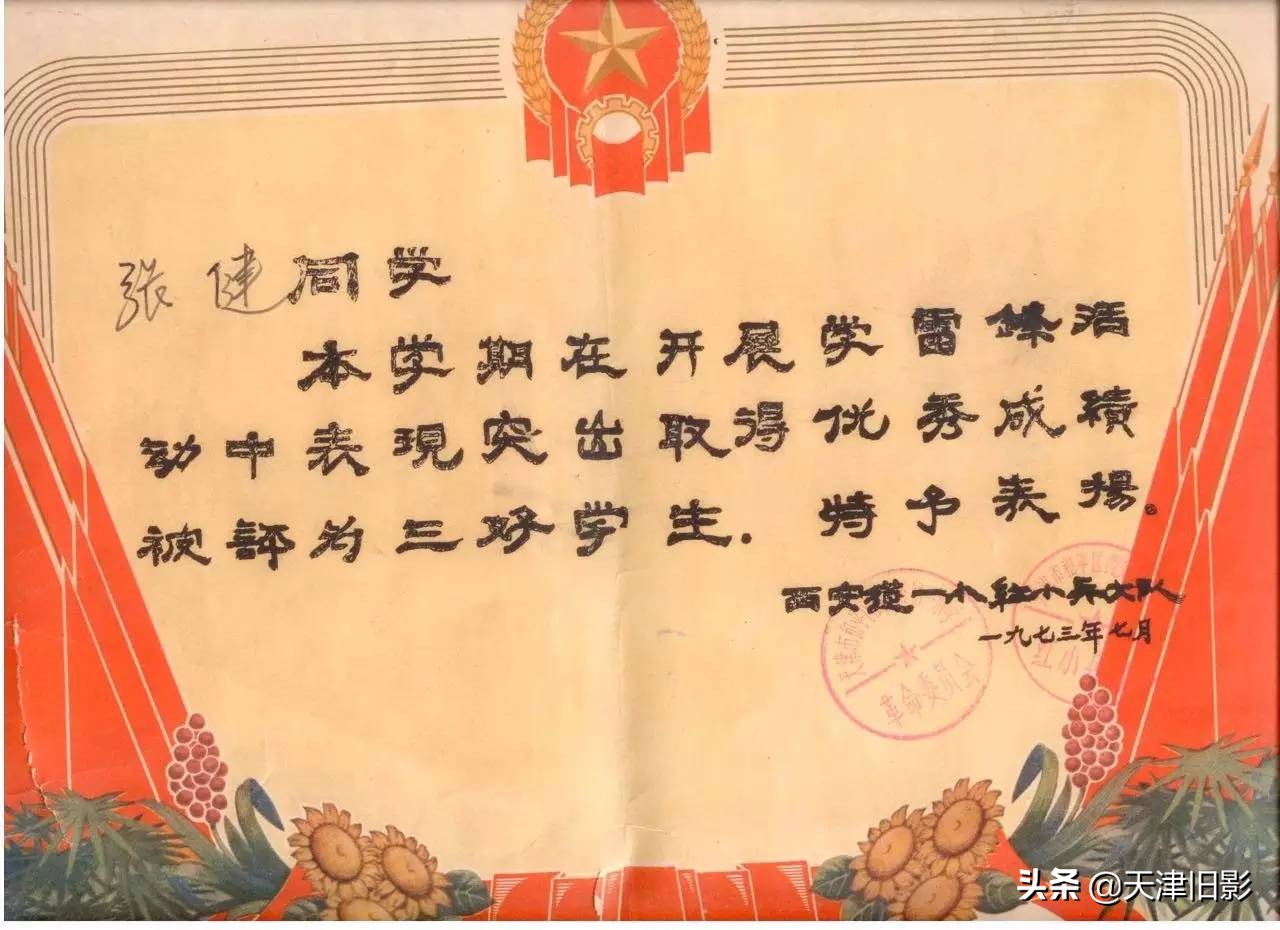 张健同学
本学期在开展学雷鋒活
动中表現突出取得优秀成績
被評为三好学生．特予表揚。
西安道一小红小兵大队
一九七三年七月
天津市和平区
革命委员会
头条 @天津旧影